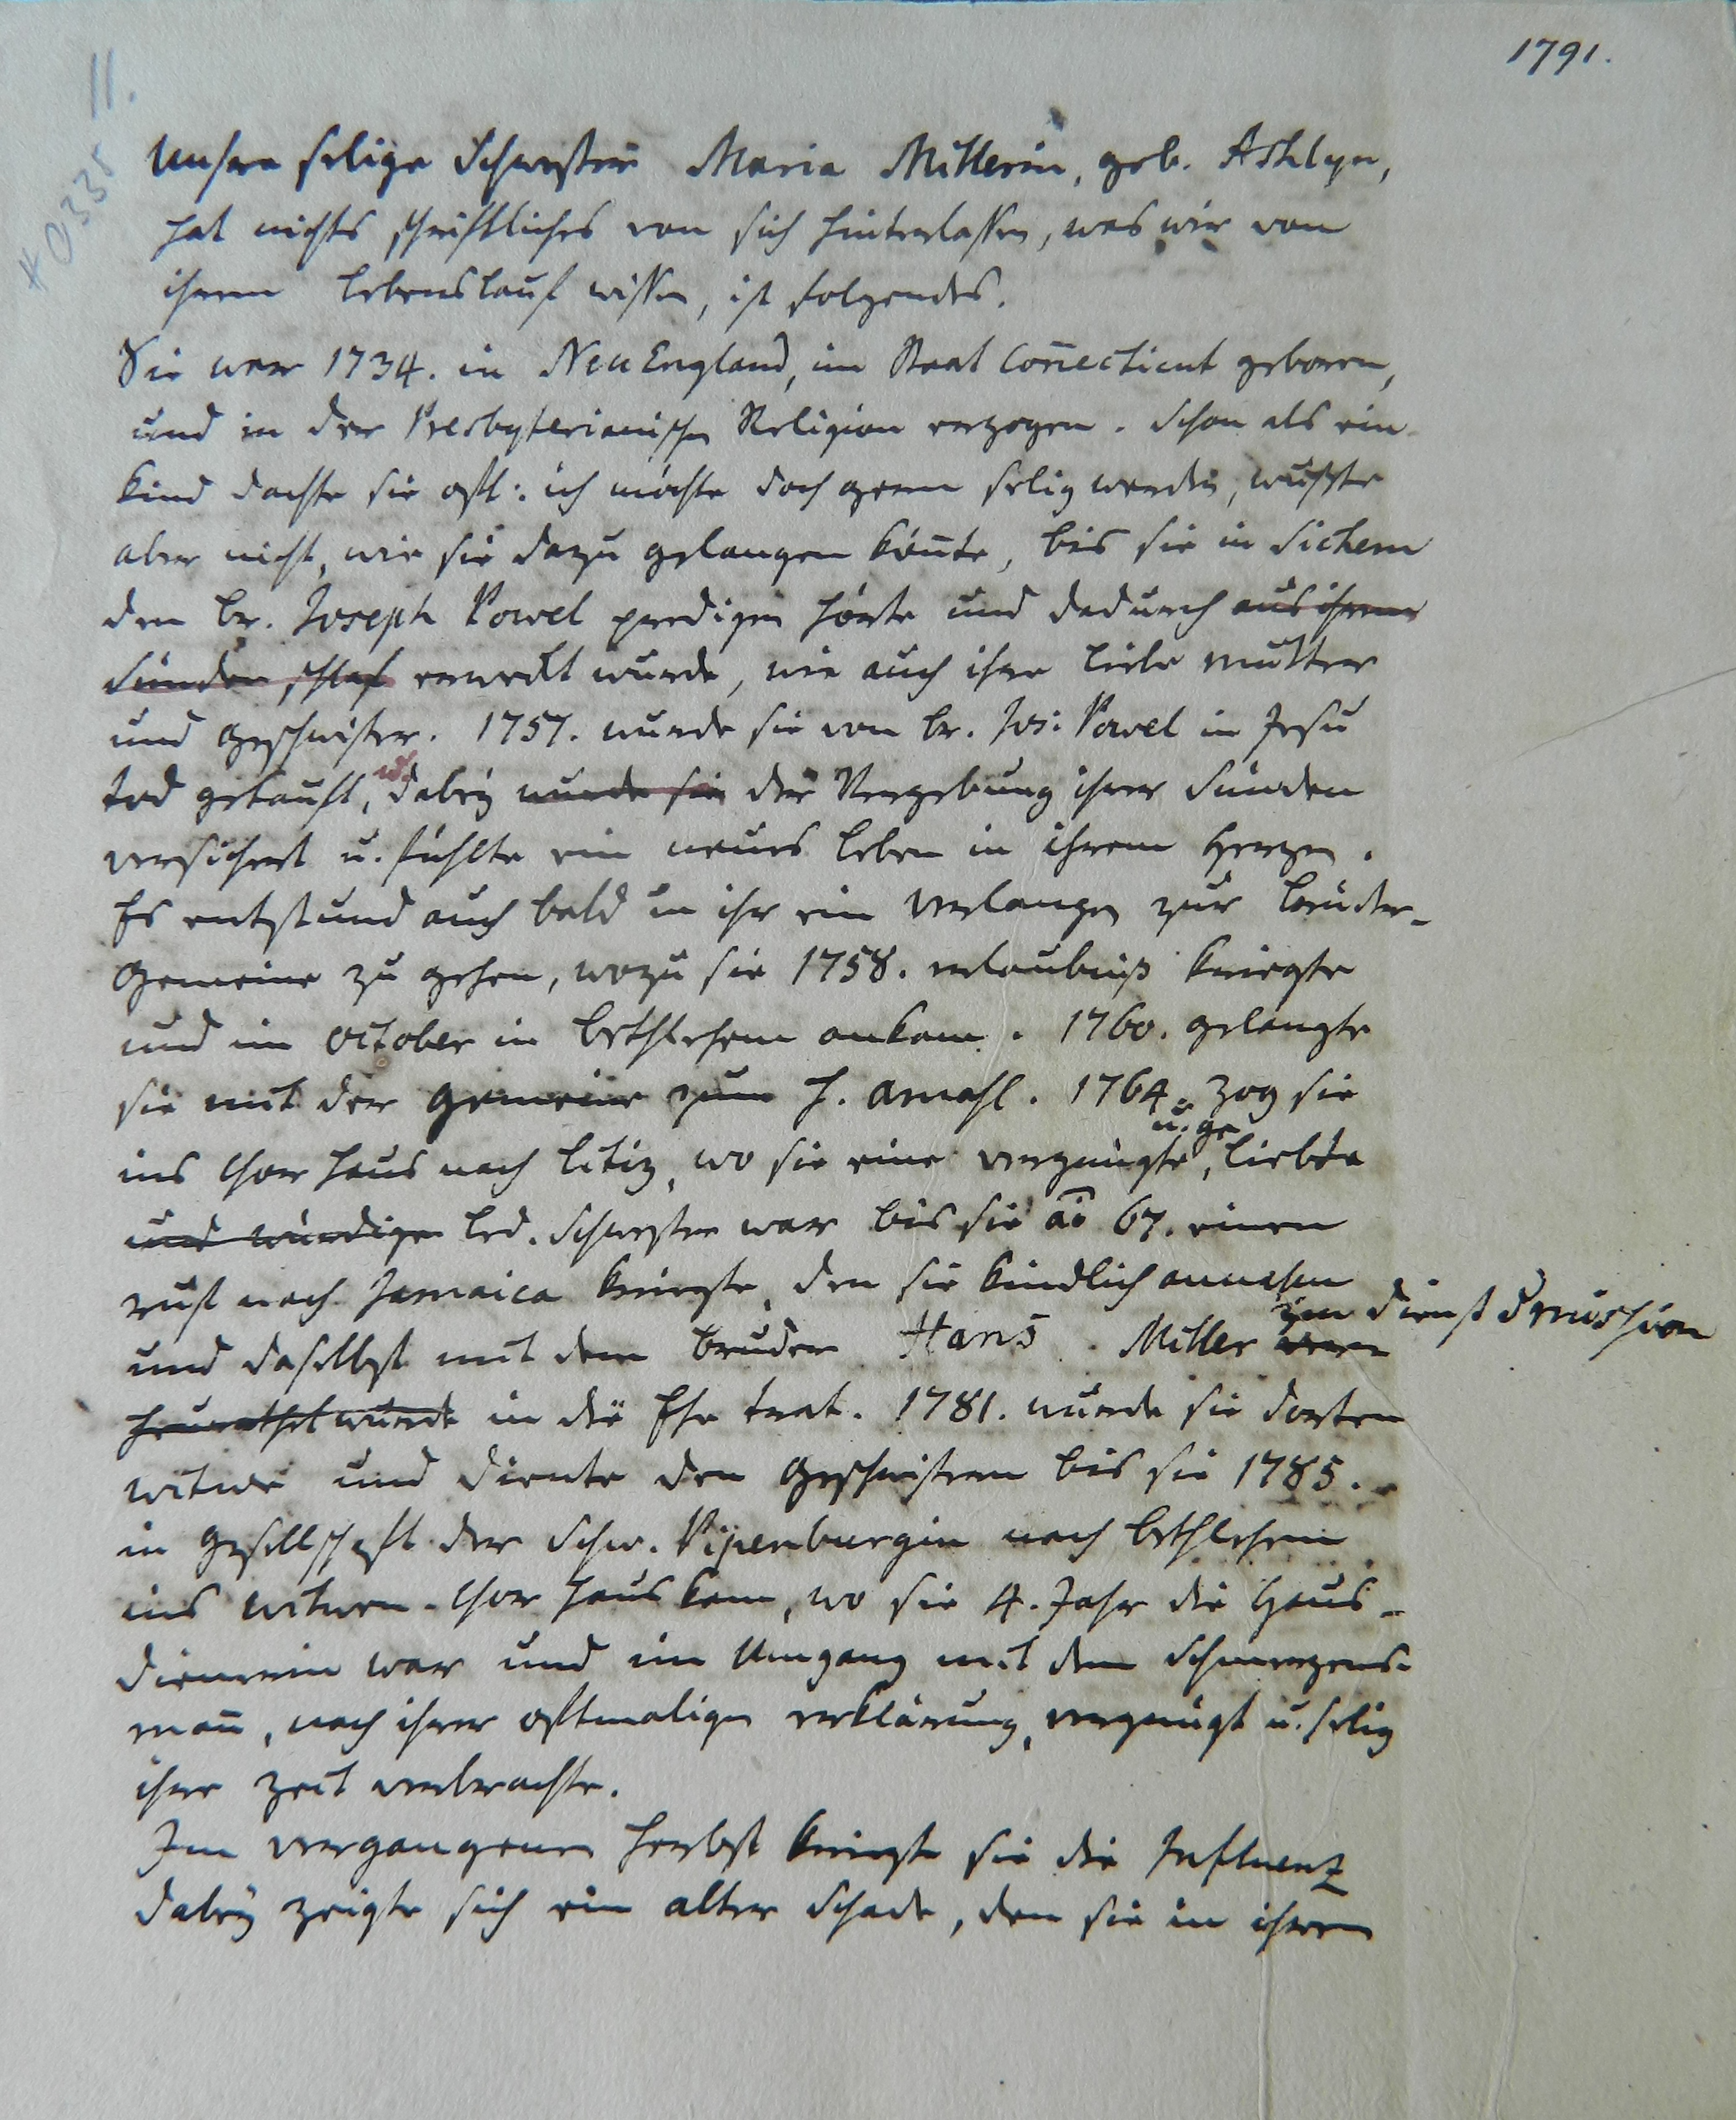 1791.
11.
#0335
Unsere selige Schwester Maria Millerin, geb. Ashleyn,
hat nichts schriftliches von sich hinterlassen, was wir von
ihrem Lebenslauf wissen, ist folgendes.
Sie war 1734. in NeuEngland, im Staat Coñecticut geboren,
und in der Presbyterianischen Religion erzogen. Schon als ein
Kind dachte sie oft: ich möchte doch gern selig werden, wußte
aber nicht, wie sie dazu gelangen köñte, bis sie in Sichem
den Br. Joseph Powel predigen hörte und dadurch aus ihrem
Sünden schlaf erweckt wurde, wie auch ihre liebe Mutter
und Geschwister. 1757. wurde sie von Br. Jos: Powel in Jesu
Tod getauft, dabey wurde sie der Vergebung ihrer Sünden
versichert u. fühlte ein neues Leben in ihrem Herzen.
Es entstund auch bald in ihr ein Verlangen zur Brüder-
Gemeine zu gehen, wozu sie 1758. erlaubniß kriegte
und im October in Bethlehem ankam. 1760. gelangte
sie mit der Gemeine zum H. Abmahl. 1764. zog sie
ins Chor Haus nach Litiz, wo sie eine vergnügte, u. geliebte
und würdige led. Schwester war bis sie aõ 67. einen
ruf nach Jamaica kriegte, den sie kindlich annahm
und daselbst mit dem Bruder Hans Miller ver im Dienst der Mission
heurathet wurde in die Ehe trat. 1781. wurde sie dorten
Witwe und diente den Geschwistern bis sie 1785.
in Gesellschaft der Schw. Pijenburgin nach Bethlehem
ins Witwen-Chor Haus kam, wo sie 4. Jahr die Haus-
dienerin war und im Umgang mit dem Schmerzens-
mañ, nach ihrer oftmaligen erklärung, vergnügt u. selig
ihre Zeit verbrachte.
Im vergangenen Herbst kriegte sie die Influenz
dabey zeigte sich ein alter Schade, den sie in ihrem